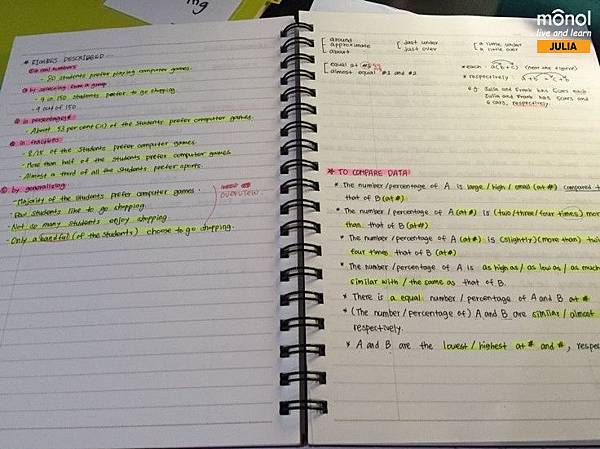 mônol
live and learn
JULIA
* FIGURES DESCRIBED
① in real numbers
- 80 students prefer playing computer games.
② by selecting from a group
- 9 in 150 students prefer to go shopping
- 9 out of 150
③ in percentages
- About 53 per cent of the students prefer computer games.
④ in fractions
- of the students prefer computer games
- More than half of the students prefer computer games
- Almost a third of all the students prefer sports.
⑤ by generalising
- Majority of the students prefer computer games.
- Few students like to go shopping
- Not so many students enjoy shopping
- Only a handful (of the students) choose to go shopping.
OVERVIEW.
around
approximate
about
just under
just over
a little under
a little over
equal at
almost equal #1 and #2
* each - (near the figure)
* respectively
e.g. Julia and Frank has 5 cars each
Julia and Frank has 5 cars and
6 cars, respectively
* TO COMPARE DATA:
* The number/percentage of A is large / high / small (at #) compared t
that of B (at #)
* The number/percentage of A (at #) is (two/three/four times) mor
than that of B (at #)
* The number/percentage of A (at #) is (slightly)(more than) twi
four times that of B (at #)
* The number/percentage of A is as high as / as low as / as much
similar with / the same as that of B.
* There is a equal number / percentage of A and B at #
* (The number / percentage of) A and B are similar / almost
respectively.
* A and B are the lowest/highest at # and #, respec